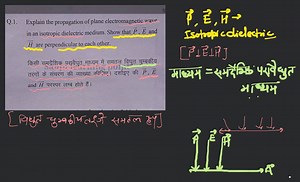 Q.1. Explain the propagation of plane electromagnetic wave
in an isotropic dielectric medium. Show that P, E and
H are perpendicular to each other.
किसी समदैशिक परावैद्युत माध्यम में समतल विद्युत चुम्बकीय
तरंगों के संचरण की व्याख्या कीजिए। दर्शाइए कि P, E
और H परस्पर लंबवत होते हैं।
P, E, H →
Isotropic dielectric
[P⊥E⊥H]
माध्यम = समदैशिक परावैद्युत
माध्यम
P E H